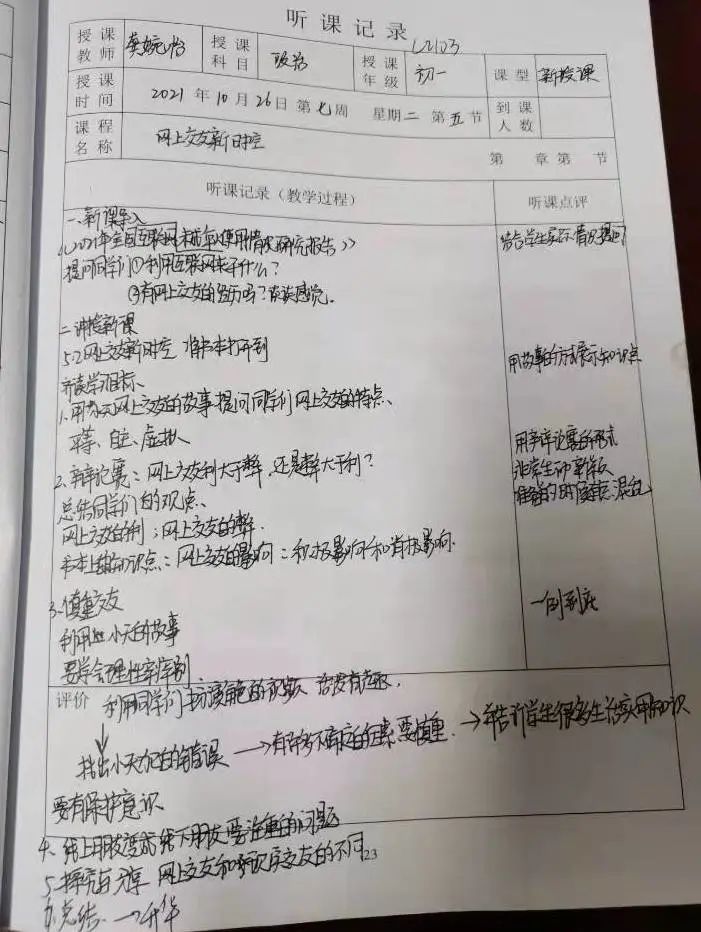 听课记录
C2103
授课教师 龚婉怡 授课科目 政治 授课年级 初一 课型 新授课
授课时间 2021年10月26日 第七周 星期二 第五节 到课人数
课程名称 网上交友新时空 第 章 第 节
听课记录（教学过程） 听课点评
一、新课导入
《2021年全国互联网未成年人使用情况研究报告》 结合学生实际情况提问
提问同学们①利用互联网来干什么？
②有网上交友的经历吗？谈谈感觉.
二、讲授新课
5.2网上交友新时空 将书本打开到 用故事的方式展示知识点
齐读学习目标、
1、用 网上交友的故事提问同学们网上交友的特点、
平等、自主、虚拟. 用辩论赛的形式
2、辩论赛：网上交友利大于弊，还是弊大于利？ 非常生动新颖
总结同学们的观点、 准备的时候 混乱
网上交友的利；网上交友的弊.
书本上的知识点：网上交友的影响：积极影响和消极影响.
3、慎重交友 一例到底
利用 小天的故事
要学会理性辨别.
评价 利用同学们扮演角色的视频 十分有趣.
找出小天犯的错误 →有许多不确定的因素要慎重. →并告诉学生很多生活实用知识
要有保护意识
4、线上朋友变成线下朋友要注意的问题
5、探究与分享 网上交友和现实交友的不同
23
6、总结. →升华